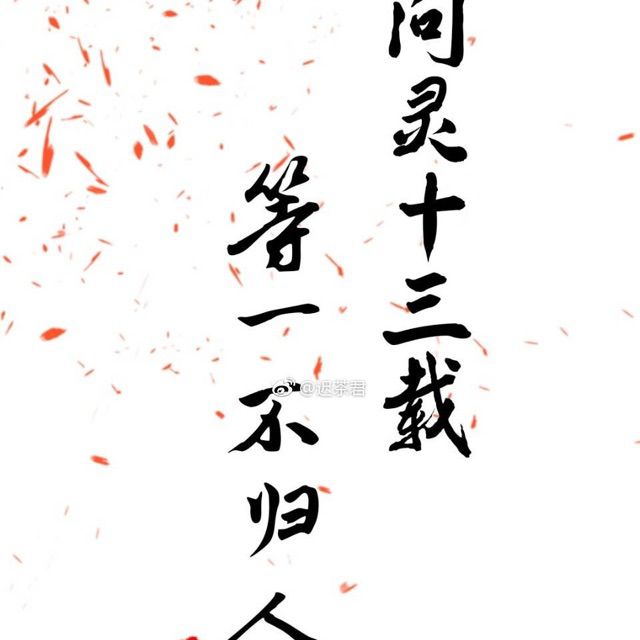 问灵十三载
等一不归人
@迟茶君